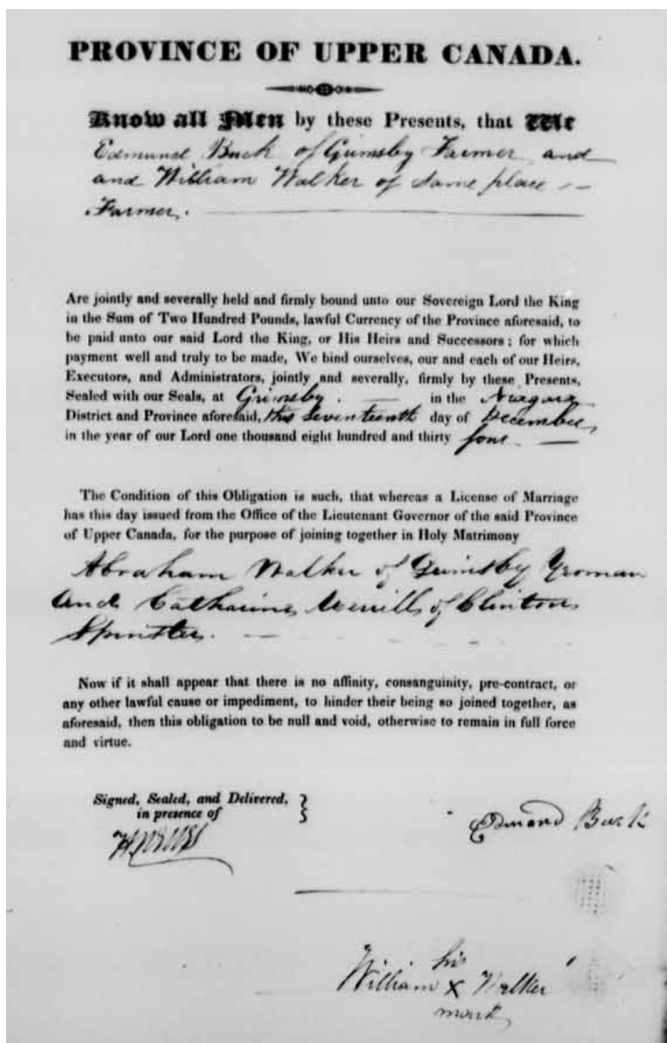 PROVINCE OF UPPER CANADA.
Know all Men by these Presents, that We
Edmund Buck of Grimsby Farmer and
and William Walker of Same place
Farmer.
Are jointly and severally held and firmly bound unto our Sovereign Lord the King
in the Sum of Two Hundred Pounds, lawful Currency of the Province aforesaid, to
be paid unto our said Lord the King, or His Heirs and Successors; for which
payment well and truly to be made, We bind ourselves, our and each of our Heirs,
Executors, and Administrators, jointly and severally, firmly by these Presents,
Sealed with our Seals, at Grimsby. — in the Niagara
District and Province aforesaid, this Seventeenth day of December
in the year of our Lord one thousand eight hundred and thirty four —
The Condition of this Obligation is such, that whereas a License of Marriage
has this day issued from the Office of the Lieutenant Governor of the said Province
of Upper Canada, for the purpose of joining together in Holy Matrimony
Abraham Walker of Grimsby Yeoman
and Catharine Merrills of Clinton
Spinster.
Now if it shall appear that there is no affinity, consanguinity, pre-contract, or
any other lawful cause or impediment, to hinder their being so joined together, as
aforesaid, then this obligation to be null and void, otherwise to remain in full force
and virtue.
Signed, Sealed, and Delivered,
in presence of
Edmond Buck
his
William X Walker
mark